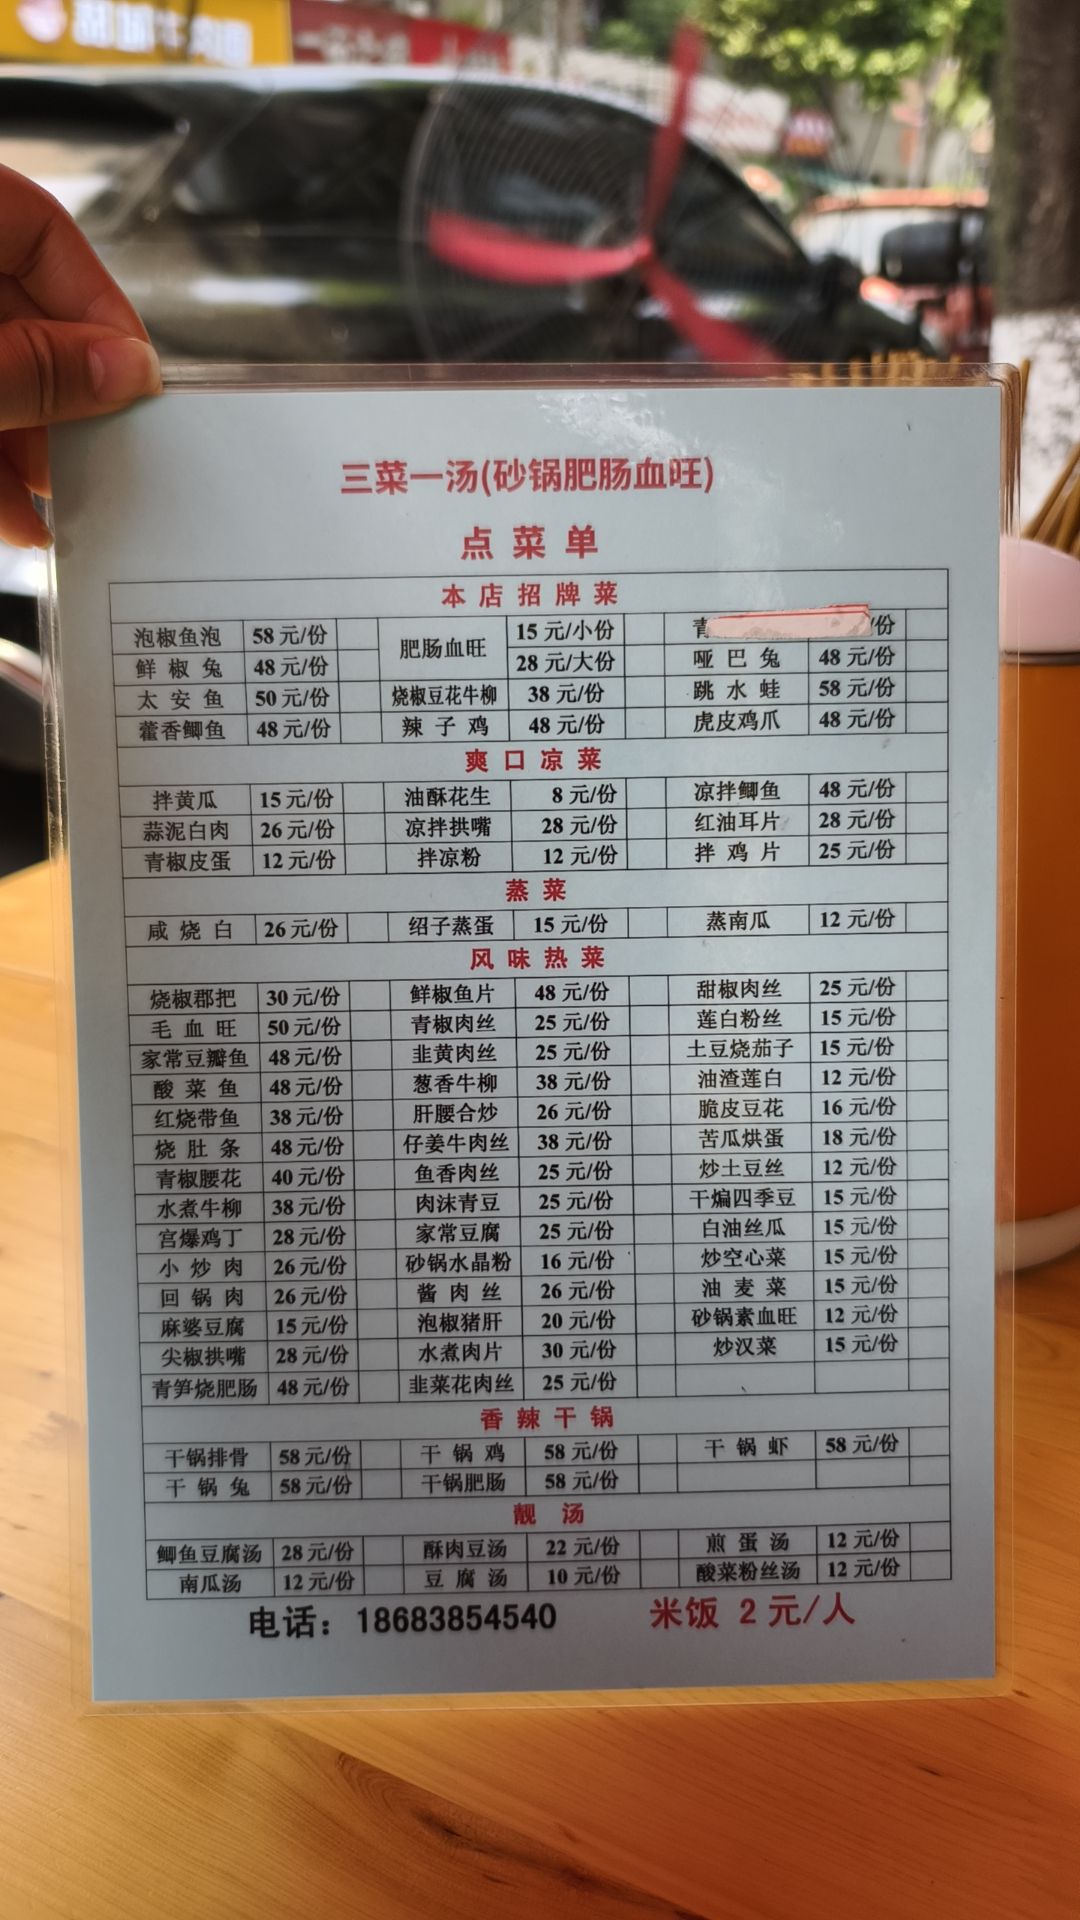 三菜一汤(砂锅肥肠血旺)
点菜单
本店招牌菜
泡椒鱼泡 58元/份 肥肠血旺 15元/小份 青 /份
鲜椒兔 48元/份 28元/大份 哑巴兔 48元/份
太安鱼 50元/份 烧椒豆花牛柳 38元/份 跳水蛙 58元/份
藿香鲫鱼 48元/份 辣子鸡 48元/份 虎皮鸡爪 48元/份
爽口凉菜
拌黄瓜 15元/份 油酥花生 8元/份 凉拌鲫鱼 48元/份
蒜泥白肉 26元/份 凉拌拱嘴 28元/份 红油耳片 28元/份
青椒皮蛋 12元/份 拌凉粉 12元/份 拌鸡片 25元/份
蒸菜
咸烧白 26元/份 绍子蒸蛋 15元/份 蒸南瓜 12元/份
风味热菜
烧椒郡把 30元/份 鲜椒鱼片 48元/份 甜椒肉丝 25元/份
毛血旺 50元/份 青椒肉丝 25元/份 莲白粉丝 15元/份
家常豆瓣鱼 48元/份 韭黄肉丝 25元/份 土豆烧茄子 15元/份
酸菜鱼 48元/份 葱香牛柳 38元/份 油渣莲白 12元/份
红烧带鱼 38元/份 肝腰合炒 26元/份 脆皮豆花 16元/份
烧肚条 48元/份 仔姜牛肉丝 38元/份 苦瓜烘蛋 18元/份
青椒腰花 40元/份 鱼香肉丝 25元/份 炒土豆丝 12元/份
水煮牛柳 38元/份 肉沫青豆 25元/份 干煸四季豆 15元/份
宫爆鸡丁 28元/份 家常豆腐 25元/份 白油丝瓜 15元/份
小炒肉 26元/份 砂锅水晶粉 16元/份 炒空心菜 15元/份
回锅肉 26元/份 酱肉丝 26元/份 油麦菜 15元/份
麻婆豆腐 15元/份 泡椒猪肝 20元/份 砂锅素血旺 12元/份
尖椒拱嘴 28元/份 水煮肉片 30元/份 炒汉菜 15元/份
青笋烧肥肠 48元/份 韭菜花肉丝 25元/份
香辣干锅
干锅排骨 58元/份 干锅鸡 58元/份 干锅虾 58元/份
干锅兔 58元/份 干锅肥肠 58元/份
靓汤
鲫鱼豆腐汤 28元/份 酥肉豆汤 22元/份 煎蛋汤 12元/份
南瓜汤 12元/份 豆腐汤 10元/份 酸菜粉丝汤 12元/份
电话：18683854540 米饭 2元/人